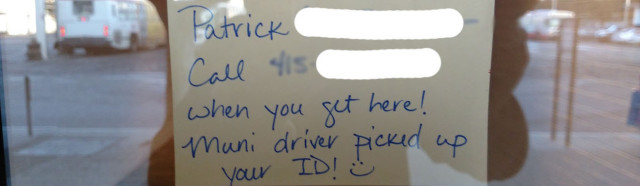 Patrick
Call 415
when you get here!
Muni driver picked up
your ID! :)